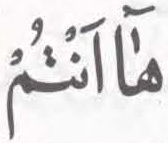 هٰٓاَنْتُمْ